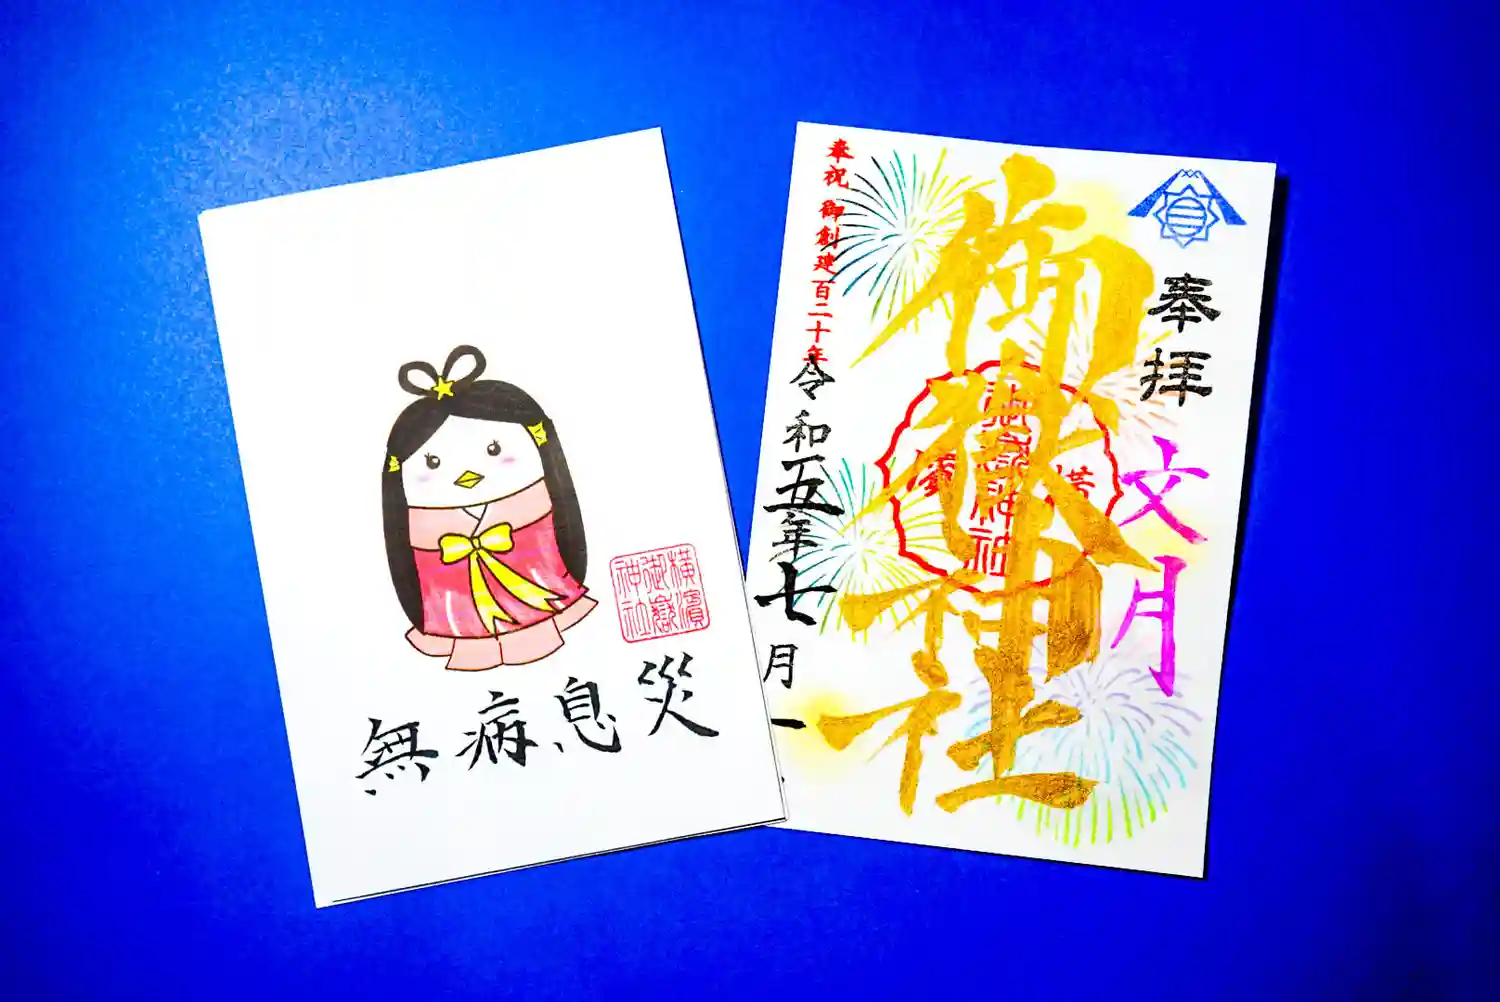 無病息災
横濱
御嶽
神社
奉拝
文月
御嶽神社
横
濱
御嶽神社
奉祝 御創建百二十年
令和五年七月一